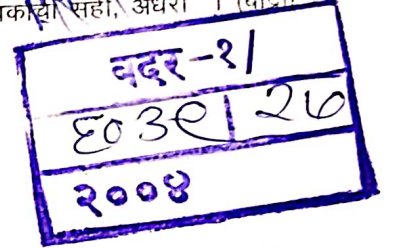 सही, अंधेरी
वदर-१/
६०३९/ २७
२००४